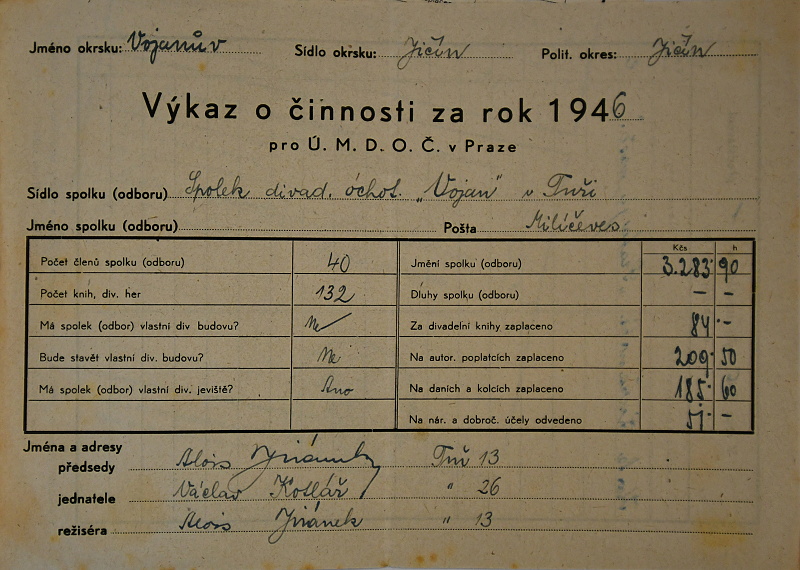 Jméno okrsku: Vojanův Sídlo okrsku: Jičín Polit. okres: Jičín
Výkaz o činnosti za rok 1946
pro Ú. M. D. O. Č. v Praze
Sídlo spolku (odboru) Spolek divad. ochot. „Vojan" v Tuři
Jméno spolku (odboru) Pošta Milíčeves
Kčs h
Počet členů spolku (odboru) 40 Jmění spolku (odboru) 3.283 90
Počet knih, div. her 132 Dluhy spolku (odboru) – –
Má spolek (odbor) vlastní div budovu? Ne Za divadelní knihy zaplaceno 84 –
Bude stavět vlastní div. budovu? Ne Na autor. poplatcích zaplaceno 209 50
Má spolek (odbor) vlastní div. jeviště? Ano Na daních a kolcích zaplaceno 185 60
Na nár. a dobroč. účely odvedeno 51 –
Jména a adresy
předsedy Alois Jiránek Tuř 13
jednatele Václav Kotlář " 26
režiséra Alois Jiránek " 13